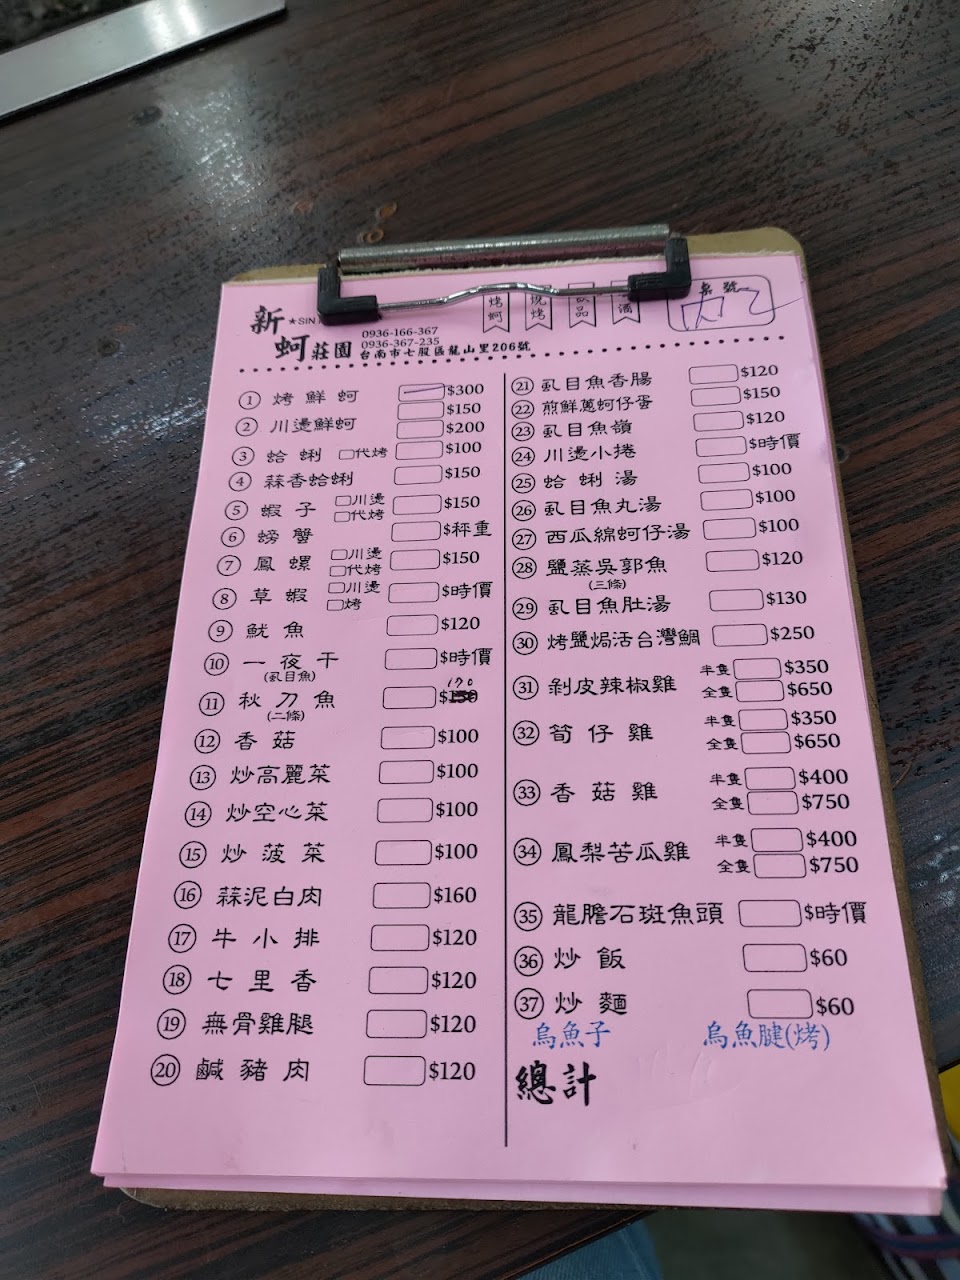 新蚵莊園
★SIN
0936-166-367
0936-367-235
台南市七股區龍山里206號
烤蚵
燒烤
飲品
酒
桌號
① 烤鮮蚵 $300
$150
② 川燙鮮蚵 $200
③ 蛤蜊 □代烤 $100
④ 蒜香蛤蜊 $150
⑤ 蝦子 □川燙 □代烤 $150
⑥ 螃蟹 $秤重
⑦ 鳳螺 □川燙 □代烤 $150
⑧ 草蝦 □川燙 □烤 $時價
⑨ 魷魚 $120
⑩ 一夜干 $時價
(虱目魚)
⑪ 秋刀魚 $170
(二條)
⑫ 香菇 $100
⑬ 炒高麗菜 $100
⑭ 炒空心菜 $100
⑮ 炒菠菜 $100
⑯ 蒜泥白肉 $160
⑰ 牛小排 $120
⑱ 七里香 $120
⑲ 無骨雞腿 $120
⑳ 鹹豬肉 $120
㉑ 虱目魚香腸 $120
㉒ 煎鮮蔥蚵仔蛋 $150
㉓ 虱目魚嶺 $120
㉔ 川燙小捲 $時價
㉕ 蛤蜊湯 $100
㉖ 虱目魚丸湯 $100
㉗ 西瓜綿蚵仔湯 $100
㉘ 鹽蒸吳郭魚 $120
(三條)
㉙ 虱目魚肚湯 $130
㉚ 烤鹽焗活台灣鯛 $250
㉛ 剝皮辣椒雞 半隻 $350
全隻 $650
㉜ 筍仔雞 半隻 $350
全隻 $650
㉝ 香菇雞 半隻 $400
全隻 $750
㉞ 鳳梨苦瓜雞 半隻 $400
全隻 $750
㉟ 龍膽石斑魚頭 $時價
㊱ 炒飯 $60
㊲ 炒麵 $60
烏魚子 烏魚腱(烤)
總計